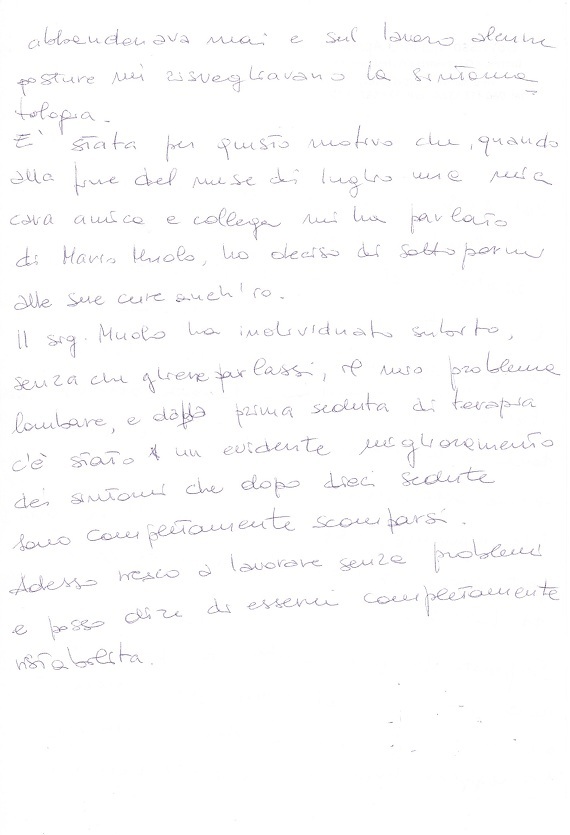 abbandonava mai e sul lavoro alcune
posture mi risvegliavano la sintoma
tologia.
E' stata per questo motivo che, quando
alla fine del mese di luglio una mia
cara amica e collega mi ha parlato
di Mario Muolo, ho deciso di sottopormi
alle sue cure anch'io.
Il sig. Muolo ha individuato subito,
senza che gliene parlassi, il mio problema
lombare, e dalla prima seduta di terapia
c'è stato un evidente miglioramento
dei sintomi che dopo dieci sedute
sono completamente scomparsi.
Adesso riesco a lavorare senza problemi
e posso dire di essermi completamente
ristabilita.